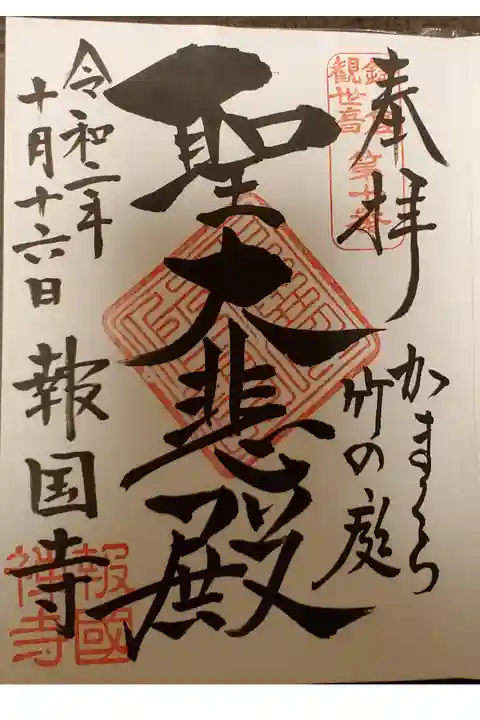 奉拝
かまくら
竹の庭
聖大悲殿
令和二年
十月十六日
報国寺
観世音
報國
禅寺